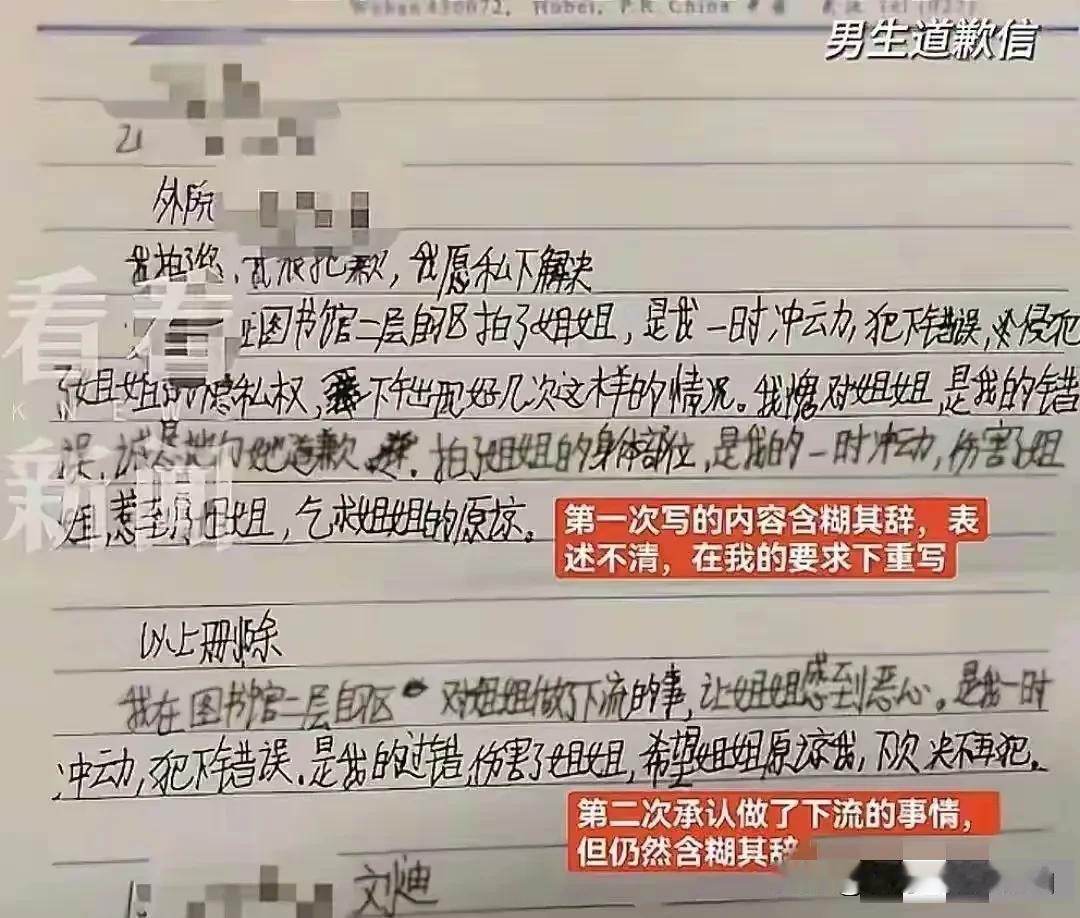 Wuhan 430072, Hubei, P.R. China
男生道歉信
外院
我愿私下解决
图书馆二层自习区拍了姐姐，是我一时冲动，犯下错误，侵犯
了姐姐的隐私权，下午出现好几次这样的情况。我愧对姐姐，是我的错
误，诚恳地向她道歉。拍了姐姐的身体部位，是我的一时冲动，伤害了姐
姐，惹到了姐姐，乞求姐姐的原谅。
第一次写的内容含糊其辞，表
述不清，在我的要求下重写
以上删除
我在图书馆二层自区 对姐姐做了下流的事，让姐姐感到恶心。是我一时
冲动，犯下错误。是我的过错，伤害了姐姐，希望姐姐原谅我，下次决不再犯。
第二次承认做了下流的事情，
但仍然含糊其辞
看看
KNEWS
新闻